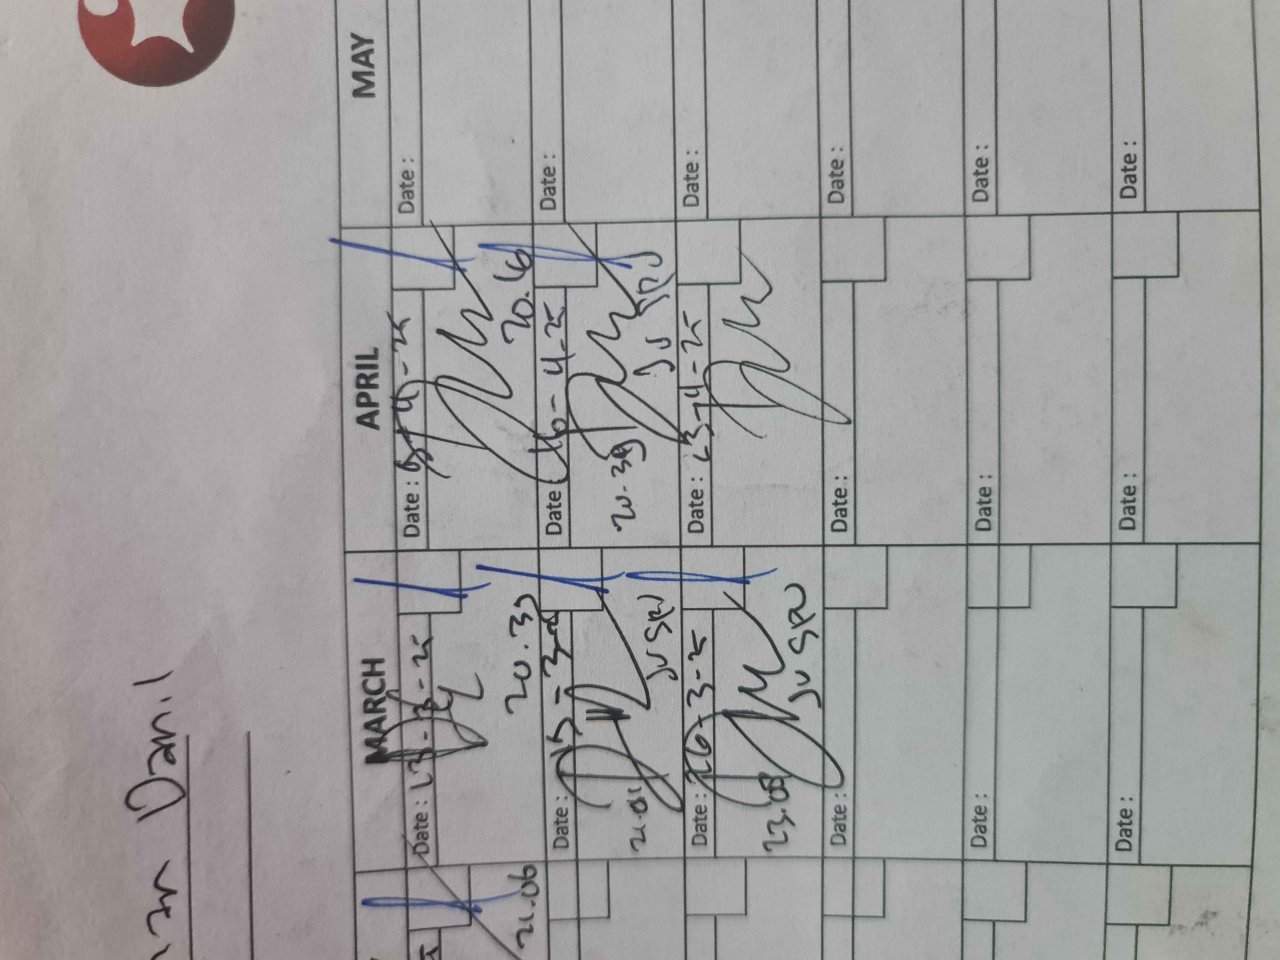 Danil
MARCH
APRIL
MAY
Date :
Date : 13-3-25
Date : 9-4-25
Date :
21.06
20.16
20.39
Date :
Date : 16-4-25
Date :
21.01
JV SPV
20.39
JV SPV
Date : 26-3-25
Date : 23-4-25
Date :
23.08
JV SPV
Date :
Date :
Date :
Date :
Date :
Date :
Date :
Date :
Date :